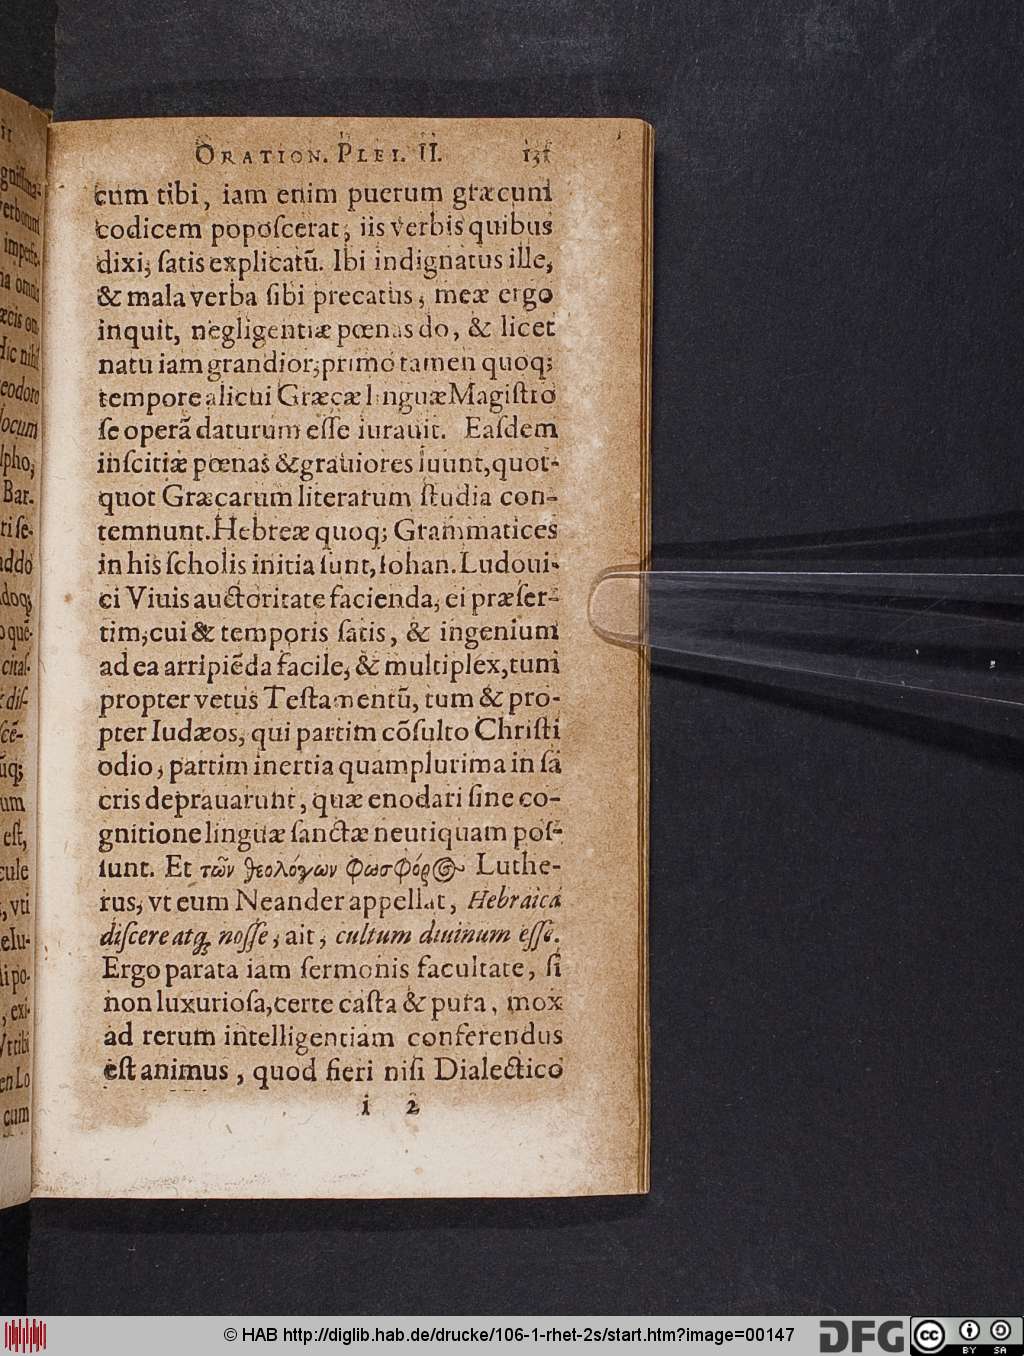 ORATION. PLEI. II. 131
cum tibi, iam enim puerum græcum
codicem popoſcerat, iis verbis quibus
dixi, ſatis explicatũ. Ibi indignatus ille,
& mala verba ſibi precatus, meæ ergo
inquit, negligentiæ pœnas do, & licet
natu iam grandior, primo tamen quoq;
tempore alicui Græcæ linguæ Magiſtro
ſe operã daturum eſſe iurauit. Eaſdem
inſcitiæ pœnas & grauiores luunt, quot-
quot Græcarum literarum ſtudia con-
temnunt. Hebreæ quoq; Grammatices
in his ſcholis initia ſunt, Iohan. Ludoui-
ci Viuis auctoritate facienda, ei præſer-
tim, cui & temporis ſatis, & ingenium
ad ea arripiẽda facile, & multiplex, tum
propter vetus Teſtamentũ, tum & pro-
pter Iudæos, qui partim cõſulto Chriſti
odio, partim inertia quamplurima in ſa
cris deprauarunt, quæ enodari ſine co-
gnitione linguæ ſanctæ neutiquam poſ-
ſunt. Et τῶν θεολόγων φωσφόρος Luthe-
rus, vt eum Neander appellat, Hebraica
diſcere atq; noſſe, ait, cultum diuinum eſſe.
Ergo parata iam ſermonis facultate, ſi
non luxurioſa, certe caſta & pura, mox
ad rerum intelligentiam conferendus
eſt animus, quod fieri niſi Dialectico
i 2
gniſſima-
verborum
imperfe-
na omnis
Hic nihil
eodoro
locum
lpho,
Bar.
ti ſe-
addo
doq;
o quẽ-
citaſ-
diſ-
ſcẽ-
ũq;
um
eſt,
cule
, vti
eIu-
li po-
, exi-
Vt tibi
en Lo
cum
© HAB http://diglib.hab.de/drucke/106-1-rhet-2s/start.htm?image=00147
DFG
cc
BY SA